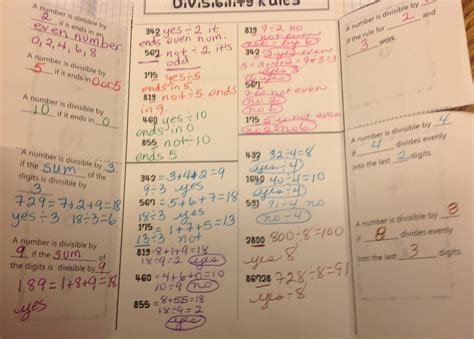 Divisibility Rules
A number is divisible by
2 if it ends in an
even number.
0, 2, 4, 6, 8
A number is divisible by
5 if it ends in 0 or 5
A number is divisible by
10 if it ends in 0
A number is divisible by 3
if the sum of the
digits is divisible by
3
729=7+2+9=18
yes ÷ 3 18÷3=6
A number is divisible by
9 if the sum of
the digits is divisible by 9
189=1+8+9=18
yes
342 yes ÷ 2 it
ends even num.
567 not ÷ 2 it's
odd
175 yes ÷ 5
ends in 5
819 not ÷ 5 ends
in 9.
460 yes ÷ 10
ends in 0.
855 not ÷ 10
ends 5
342 = 3+4+2=9
9÷3 yes
567 = 5+6+7=18
18÷3 yes
175 = 1+7+5=13
13÷3 not
819 = 8+1+9=18
18÷9=2 yes
460 = 4+6+0=10
10÷9 no
855 = 8+5+5=18
18÷9=2
yes
819 9÷2 no
not even
342 yes even
3+4+2=9÷3=3
yes
567
7 is not even
no 2
no 6
175 5 is not even
no 2 no 6
432 32÷4=8
yes ÷ 4
1640 40÷4=10
yes ÷ 4
591 91÷4=
no ÷ 4
2800 800÷8=100
yes ÷ 8
86728 728÷8=91
yes ÷ 8
A number is divisible by
if the rule for 2 and
3 work.
A number is divisible by 4
if 4 divides evenly
into the last 2 digits
A number is divisible by 8
if 8 divides evenly
into the last 3 digits